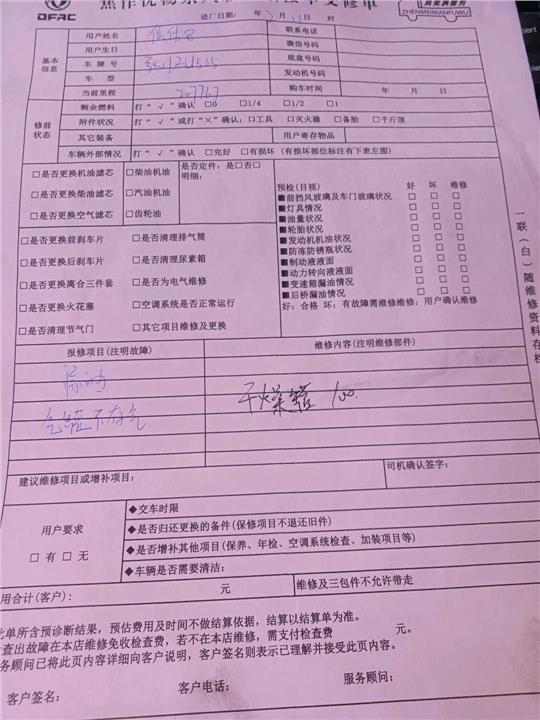 DFAC
ZHENMEIWANFUWU
进厂日期： 年 月 日 时
基本信息
用户姓名 联系电话
用户生日 微信号码
车牌号 底盘号码
车型 发动机号码
当前里程 207767 购车时间 年 月 日
修前状态
剩余燃料 打“√”确认 □0 □1/4 □1/2 □1
附件状况 打“√”或打“×”确认：□工具 □灭火器 □备胎 □千斤顶
其它装备 用户寄存物品
车辆外部情况 打“√”确认 □完好 □有损坏（有损坏部位标注有下表左图）
□是否更换机油滤芯 □柴油机油 是否定件：是□否□
明细：
□是否更换柴油滤芯 □汽油机油
□是否更换空气滤芯 □齿轮油
□是否更换前刹车片 □是否清理排气筒
□是否更换后刹车片 □是否清理尿素箱
□是否更换离合三件套 □是否为电气维修
□是否更换火花塞 □空调系统是否正常运行
□是否清理节气门 □其它项目维修及更换
预检(目视) 好 坏 维修
■前挡风玻璃及车门玻璃状况 □ □ □
■灯具情况 □ □ □
■油量状况 □ □ □
■轮胎状况 □ □ □
■发动机机油状况 □ □ □
■防冻防锈瓶状况 □ □ □
■制动液液面 □ □ □
■动力转向液液面 □ □ □
■变速箱漏油情况 □ □ □
■后桥漏油情况 □ □ □
好：合格 坏：有故障需维修维修：用户确认维修
一联（白）随维修资料存档
报修项目(注明故障) 维修内容(注明维修部件)
漏油
气罐不存气 干燥器 100.
建议维修项目或增补项目： 司机确认签字：
用户要求
□有 □无
◆交车时限
◆是否归还更换的备件(保修项目不退还旧件)
◆是否增补其他项目(保养、年检、空调系统检查、加装项目等)
◆车辆是否需要清洁：
用合计(客户)： 元 维修及三包件不允许带走
此单所含预诊断结果，预估费用及时间不做结算依据，结算以结算单为准。
查出故障在本店维修免收检查费，若不在本店维修，需支付检查费 元。
务顾问已将此页内容详细向客户说明，客户签名则表示已理解并接受此页内容。
客户签名： 客户电话： 服务顾问：